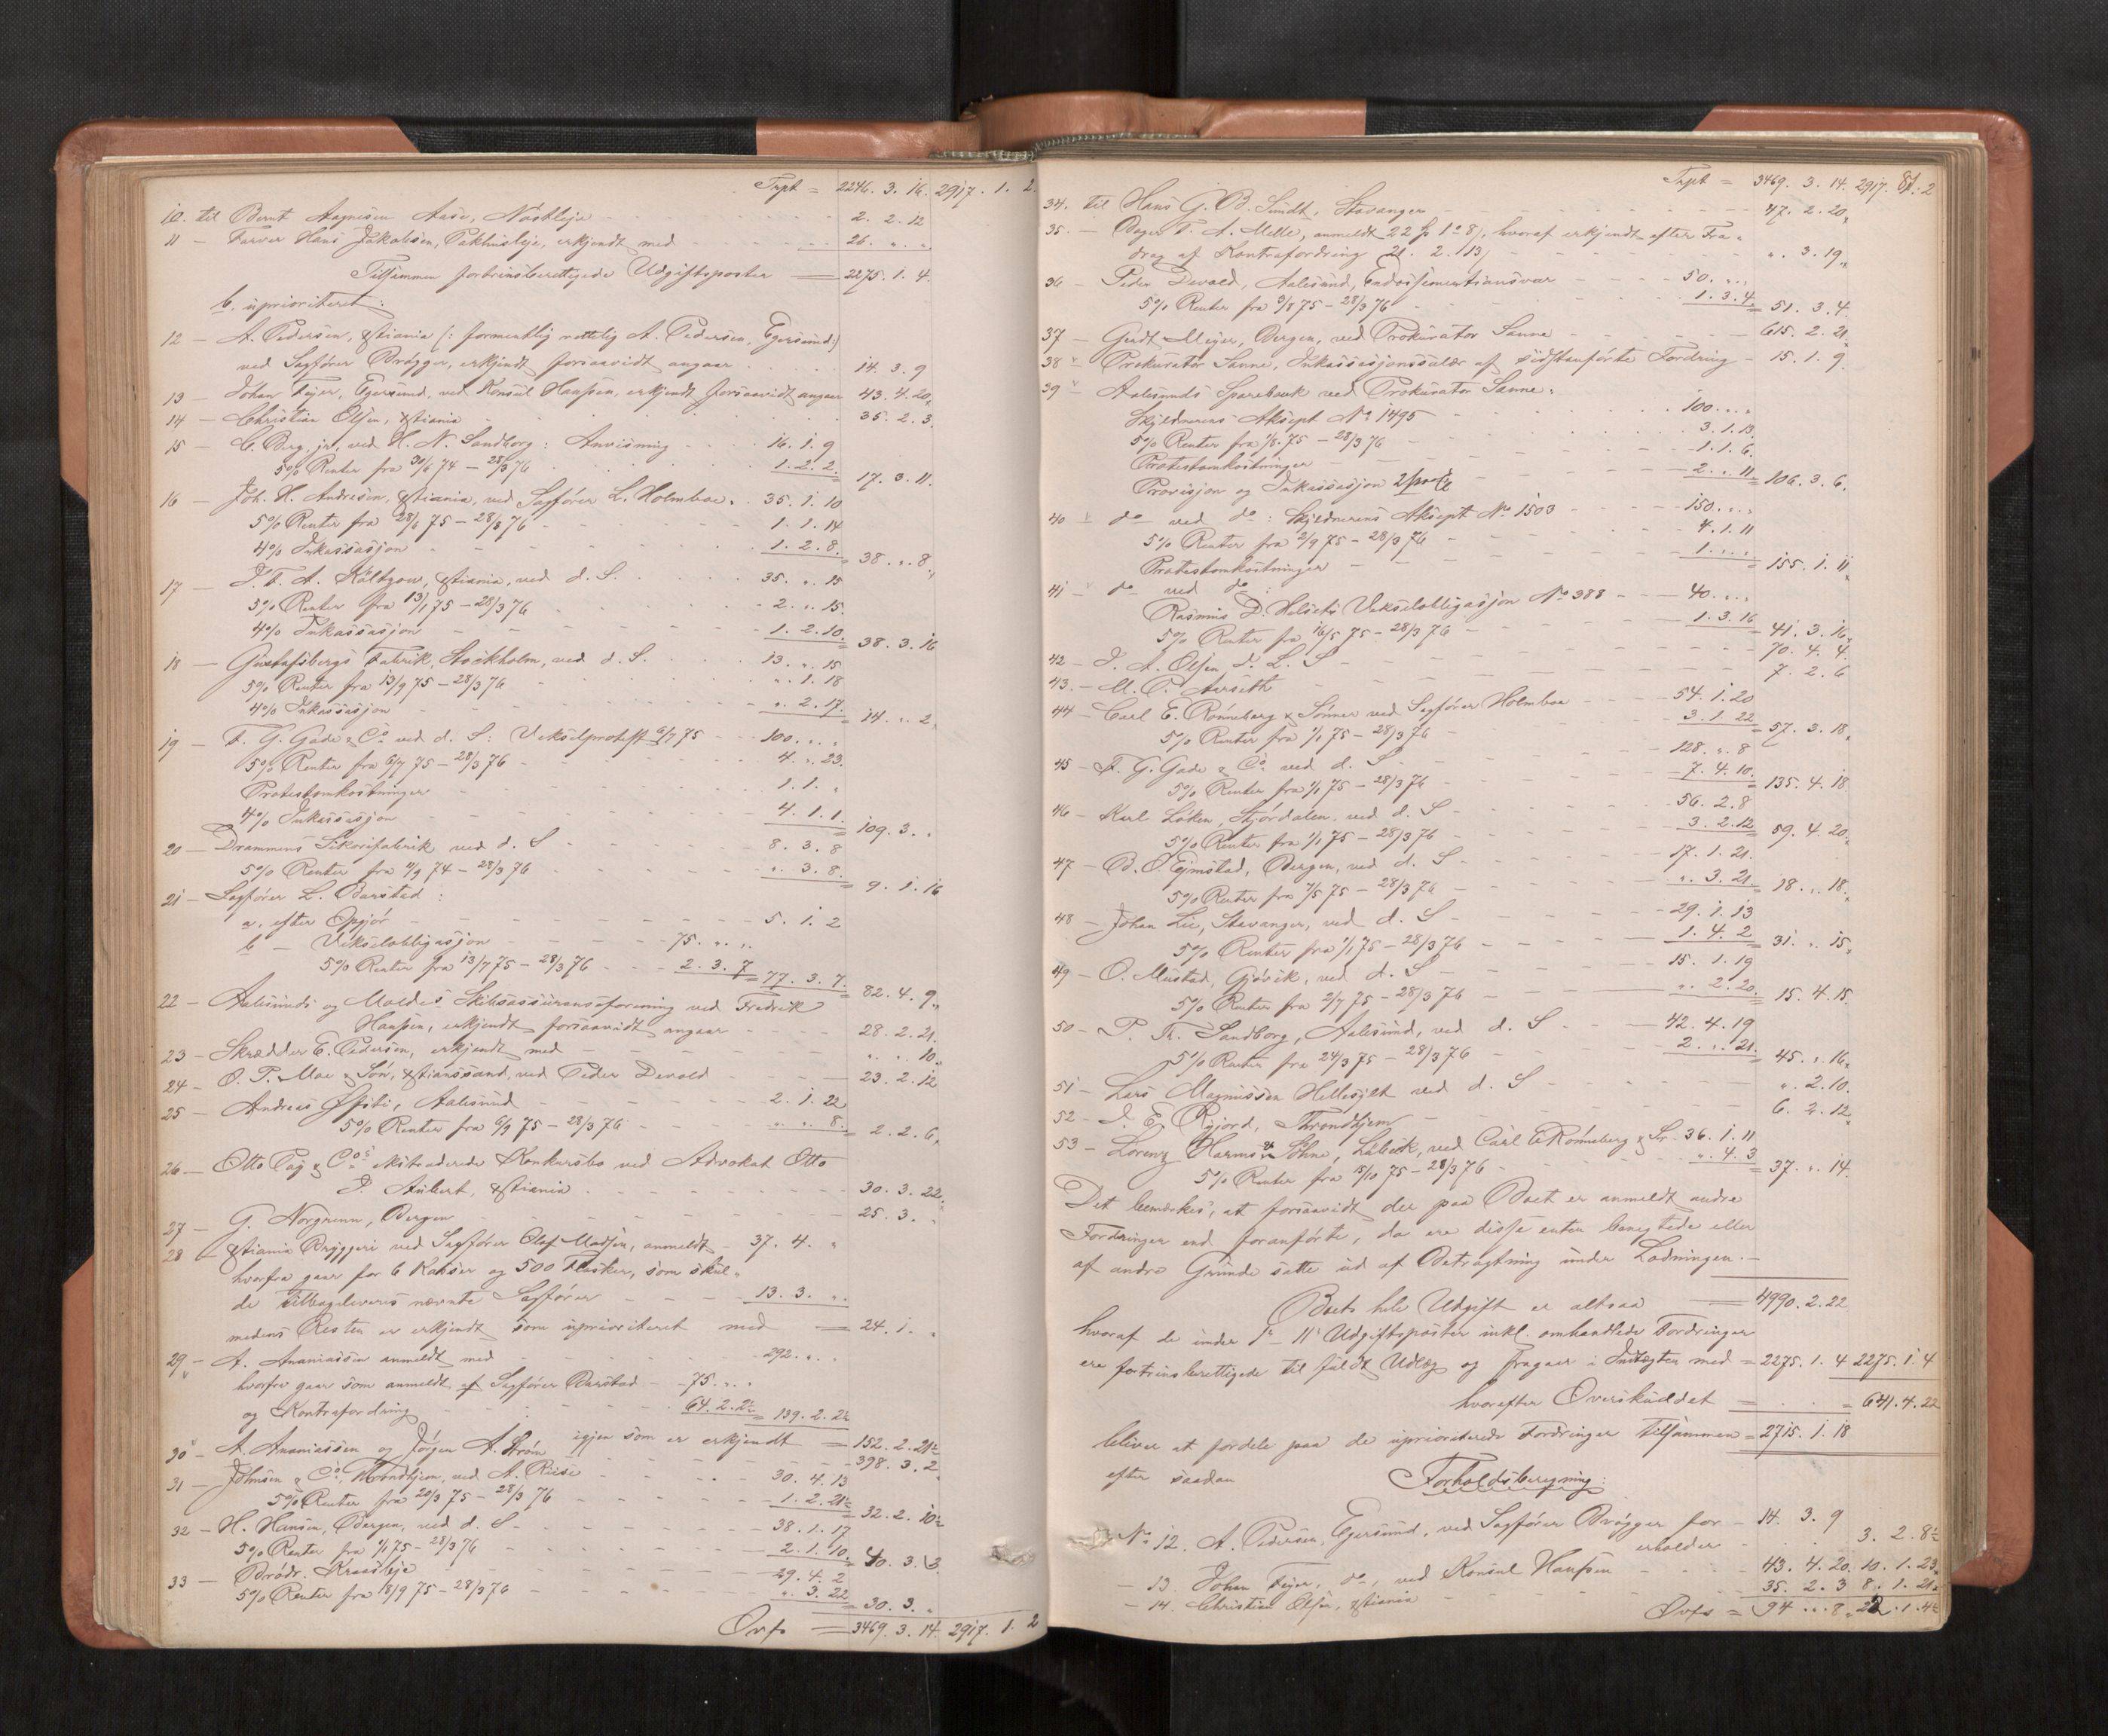 Trpt = 2246. 3. 16. 2917. 1. 2.
10. til Bernt Aagnesen Aase, Nöstleje - 2. 2. 12
11 - Farver Hans Jakobsen, Pakhusleje, erkjendt med - 26. " "
Tilsammen fortrinsberettigede Udgiftsposter = 2275. 1. 4.
b. uprioriteret:
12 - A. Pedersen, Xstiania (: formentlig rettelig A. Pedersen, Egersund:)
ved Sagförer Brögger, erkjendt forsaavidt angaar - 14. 3. 9
13 - Johan Fejer, Egersund, ved Konsul Hanssen, erkjendt forsaavidt angaar 43. 4. 20.
14 - Christian Olsen, Xstiania - 35. 2. 3.
15 - C. Berg jr, ved H. N. Sandborg: Anvisning - 16. 1. 9
5% Renter fra 30/6 74 - 28/3 76 - 1. 2. 2. = 17. 3. 11.
16 - Joh. H. Andresen, Xstiania, ved Sagförer L. Holmboe. 35. 1. 10
5% Renter fra 28/6 75 - 28/3 76 - 1. 1. 14
4% Inkassasjon - 1. 2. 8. = 38. " 8.
17 - ved d. S. 35. " 15
5% Renter fra 13/1 75 - 28/3 76 - 2. " 15.
4% Inkassasjon - 1. 2. 10. = 38. 3. 16
18 - Gustafsbergs Fabrik, Stockholm, ved d. S. 13. " 15
5% Renter fra 13/9 75 - 28/3 76 - ". 1. 18
4% Inkassasjon - ". 2. 17. = 14. " 2.
19 - F. G. Gade & Co ved d. S: Vekselprotest 6/7 75 - 100. " "
5% Renter fra 6/7 75 - 28/3 76 - 4. " 23.
Protestomkostninger - 1. 1. "
4% Inkassasjon - 4. 1. 1. = 109. 3. "
20 - Drammens Sikorifabrik ved d. S - 8. 3. 8
5% Renter fra 11/9 74 - 28/3 76 - ". 3. 8. = 9. 1. 16
21 - Sagförer L. Barstad:
a, efter Opgjör - 5. 1. 2
b - Vekselobligasjon - 75. " "
5% Renter fra 13/7 75 - 28/3 76 - 2. 3. 7 = 77. 3. 7. = 82. 4. 9.
22 - Aalesunds og Moldes Skibsassuranseforening ved Fredrik
Hanssen, erkjendt forsaavidt angaar - 28. 2. 21.
23 - Skrædder E. Pedersen, erkjendt med - " " 10.
24 - O. P. Moe & Sön, Xstianssand, ved Peder Devold - 23. 2. 12
25 - Andreas Aalesund - 2. 1. 22
5% Renter fra 6/9 75 - 28/3 76 - " " 8. = 2. 2. 6.
26 - Otto Fog & Cos ekstraderede Konkursbo ved Advokat Otto
J. Aubert, Xstiania - 30. 3. 22.
27 - G. Norgrenn, Bergen - 25. 3. "
28 - Xstiania Bryggeri ved Sagförer Olaf Madsen, anmeldt - 37. 4. "
hvorfra gaar for 6 Kasser og 500 Flasker, som skul-
de tilbageleveres nævnte Sagförer - 13. 3. "
medens Resten er erkjendt som uprioriteret med = 24. 1. "
29 - A. Ananiassen anmeldt med - 292. " "
hvorfra gaar som anmeldt af Sagförer Barstad - 75. " "
og Kontrafordring - 64. 2. 2½ = 139. 2. 2½
igjen som er erkjendt = 152. 2. 21½
30 - A. Ananiassen og Jörgen A. Ström - 398. 3. 2
31 - Johnsen & Co, Trondhjem, ved A. Riise 30. 4. 13
5% Renter fra 20/3 75 - 28/3 76 - 1. 2. 21½ = 32. 2. 10½
32 - H. Hansen, Bergen, ved d. S - 38. 1. 17
5% Renter fra 1/1 75 - 28/3 76 - 2. 1. 10. = 40. 3. 3.
33 - Brödr. - 29. 4. 2
5% Renter fra 18/9 75 - 28/3 76 - ". 3. 22 = 30. 3. "
Ovfr = 3469. 3. 14. 2917. 1. 2
Trpt = 3469. 3. 14. 2917. 1. 2
81.
34. til Hans G. B. Sundt, Stavanger - 47. 2. 20.
35. - Bager T. A. Melle, anmeldt 22 Sp 1 8, hvoraf erkjendt efter Fra-
drag af Kontrafordring 21. 2. 13, - ". 3. 19.
36 - Peder Devold, Aalesund, Endossementsansvar - 50. " "
5% Renter fra 9/8 75 - 28/3 76 - 1. 3. 4. = 51. 3. 4.
37 - Gerdt Meyer, Bergen, ved Prokurator Sanne - 615. 2. 21.
38 - Prokurator Sanne, Inkassasjonssalær af sidstanförte Fordring - 15. 1. 9.
39 - Aalesunds Sparebank ved Prokurator Sanne:
Skyldnerens Aksept No 1495 - 100. " "
5% Renter fra 1/8 75 - 28/3 76 - 3. 1. 13.
Protestomkostninger - 1. 1. 6.
Provisjon og Inkassasjon 2 pro Ct - 2. " 11. = 106. 3. 6.
40 - do ved do: Skyldnerens Aksept No 1503 - 150. " "
5% Renter fra 2/9 75 - 28/3 76 - 4. 1. 11
Protestomkostninger - 1. " " = 155. 1. 11
41 - do ved do:
Rasmus D. Helsets Vekselobligasjon No 388 - 40. " "
5% Renter fra 16/5 75 - 28/3 76 - 1. 3. 16 = 41. 3. 16.
42 - J. A. Olsen d. L. S - 70. 4. 4.
43. - M. P. Aarseth - 7. 2. 6
44 - Carl E. Rönneberg & Sönner ved Sagförer Holmboe - 54. 1. 20
5% Renter fra 1/1 75 - 28/3 76 - 3. 1. 22 = 57. 3. 18.
45 - F. G. Gade & Co ved d. S - 128. " 8
5% Renter fra 1/1 75 - 28/3 76 - 7. 4. 10. = 135. 4. 18
46 - Karl Löken, Stjördalen, ved d. S - 56. 2. 8
5% Renter fra 1/1 75 - 28/3 76 - 3. 2. 12 = 59. 4. 20.
47 - B. Bergen, ved d. S - 17. 1. 21.
5% Renter fra 7/5 75 - 28/3 76 - ". 3. 21. = 18. " 18.
48 - Johan Lie, Stavanger, ved d. S - 29. 1. 13
5% Renter fra 1/1 75 - 28/3 76 - 1. 4. 2 = 31. " 15.
49 - O. Mustad, Gjövik, ved d. S - 15. 1. 19
5% Renter fra 2/7 75 - 28/3 76 - ". 2. 20. = 15. 4. 15.
50 - P. Th. Sandborg, Aalesund, ved d. S - 42. 4. 19
5% Renter fra 24/3 75 - 28/3 76 - 2. " 21. = 45. " 16.
51 - Lars Magnussen Hellesylt ved d. S - ". 2. 10.
52 - J. E. Rjjord, Throndhjem - 6. 2. 12.
53 - Lorenz Harms & Söhne, Lübeck, ved Carl E Rönneberg & Sr. 36. 1. 11
5% Renter fra 15/10 75 - 28/3 76 - ". 4. 3 = 37. " 14.
Det bemærkes, at forsaavidt der paa Boet er anmeldt andre
Fordringer end foranförte, da ere disse enten benegtede eller
af andre Grunde satte ud af Betragtning under Lodningen. -
Boets hele Udgift er altsaa = 4990. 2. 22
hvoraf de under 1e - 11e Udgiftsposter inkl. omhandlede Fordringer
ere fortrinsberettigede til fuldt Udlæg og fragaar i Indtægten med = 2275. 1. 4 2275. 1. 4
hvorefter Overskuddet = 641. 4. 22
bliver at fordele paa de uprioriterede Fordringer tilsammen = 2715. 1. 18
efter saadan Forholdsberegning:
No 12. A. Pedersen, Egersund, ved Sagförer Brögger for - 14. 3. 9
erholder - 3. 2. 8½
- 13. Johan Fejer, do, ved Konsul Hanssen - 43. 4. 20. 10. 1. 23.
- 14. Christian Olsen, Xstiania - 35. 2. 3 8. 1. 21.
Ovfr = 94. " 8. 22. 1. 4½